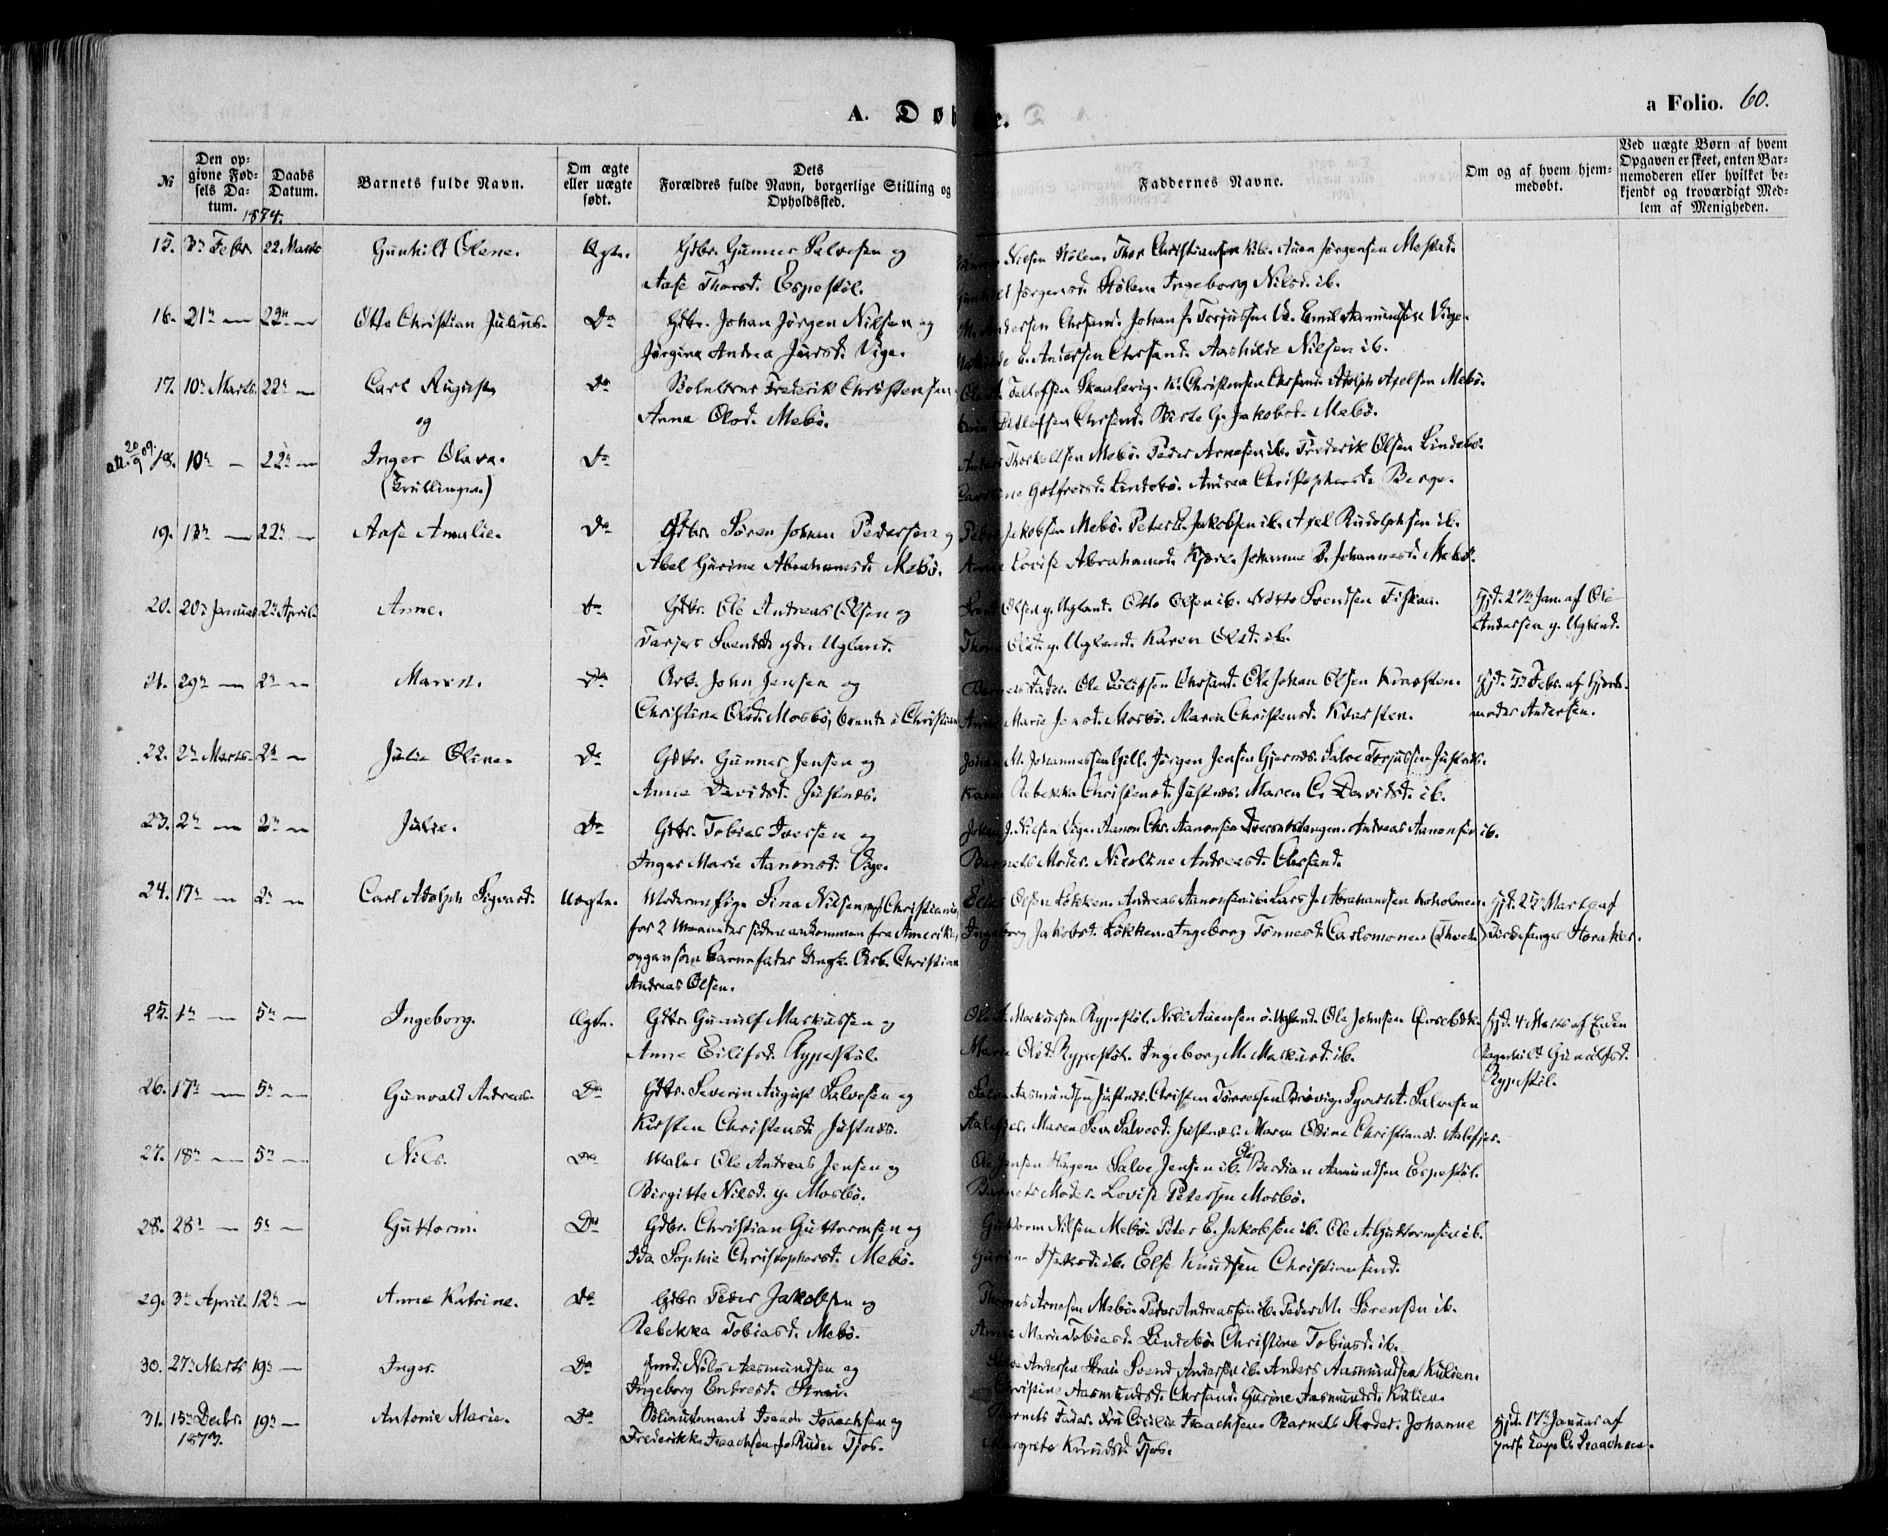 A. Døb e.
a Folio. 60.
№
Den op-
givne Fød-
sels Da-
tum.
1874.
Daabs
Datum.
Barnets fulde Navn.
Om ægte
eller uægte
født.
Dets
Forældres fulde Navn, borgerlige Stilling og
Opholdssted.
Faddernes Navne.
Om og af hvem hjem-
medøbt.
Ved uægte Børn af hvem
Opgaven er skeet, enten Bar-
nemoderen eller hvilket be-
kjendt og troværdigt Med-
lem af Menigheden.
15. 3n Febr. 22 Marts Gunhild Olene. Ægte. Gdbr. Gunner Salvesen og
Aase Thorsd. Espestøl.
Nilsen Stølen. Thor Christiansen ib. Auen Jørgensen Mestad.
Gunhild Jørgensd. Stølen Ingeborg Nilsd. ib.
16. 21n — 22n — Otto Christian Julius. Do Gdbr. Johan Jørgen Nilsen og
Jørgine Andrea Jensd. Vige.
Andersen Chrsand. Johan J. Terjussen Emil Aamundsen Vige.
Andersen Chrsand. Aashilde Nilsen ib.
17. 10n Marts. 22n — Carl August Do Frederik Christensen
og
Anna Olsd. Mebø.
Christensen Chrsand. Adolph Axelsen Mebø.
Chrsand. Berte G. Jakobsd. Mebø.
18. 10n — 22n — Inger Olava. Do
(Tvillinger.)
Anders Thorkeldsen Mebø. Peder Arnesen ib. Frederik Olsen Lindebø.
Lindebø. Andrea Christophersd. Berge.
19. 13n — 22n — Aase Amalie. Do Gdbr. Søren Johan Pedersen og
Abel Gurine Abrahamsd. Mebø.
Peder Jakobsen Mebø. Peter E. Jakobsen ib. Axel Rudolphsen ib.
Anne Lovise Abrahamsd. Kjære. Johanne B. Johannesd. Mebø.
20. 20n Januar 2n April Anne. Do Gdbr. Ole Andreas Olsen og
Tarjer Svendsd. ydre Ugland.
Olsen y. Ugland. Otto Olsen ib. Svendsen Fiskaa.
Thone Olsd. y. Ugland. Karen Olsd. ib.
hjd. 27n Jan. af Ole
Andersen y. Ugland.
21. 29n — 2n — Maren. Do Arb. John Jensen og
Christine Olsd. Mosbø, boende i Christian
Barnets Fader. Ole Eilifsen Chrsand. Ole Johan Olsen Kvarsten.
Anne Marie Jensd. Mosbø. Maren Christensd. Kvarsten.
hjd. 5n Febr. af Gjorde-
moder Andersen.
22. 2n Marts 2n — Julie Oline. Do Gdbr. Gunner Jensen og
Anne Davidsd. Justnæs.
Johan M. Johannessen Gill. Jørgen Jensen Gjernæs. Salve Terjussen Justnæs.
Karen Rebekka Christensd. Justnæs. Maren C. Davidsd. ib.
23. 2n — 2n — Julie. Do Gdbr. Tobias Iversen og
Inger Marie Aanonsd. Vige.
Johan J. Nilsen Vige. Aanon Chr. Aanonsen Andreas Aanonsen ib.
Barnets Moder. Nicoline Andreasd. Chrsand.
24. 17n — 2n — Carl Adolph Sigvard. Uægte. Moderen Pige Sina Nilsen af Christiania,
for 2 Maaneder siden ankommen fra Amerika,
opgav som Barnefader Ungk. Arb. Christian
Andreas Olsen.
Elias Olsen Løkken. Andreas Aanonsen ib. Lars J. Abrahamsen Koholmen.
Ingeborg Jakobsd. Løkken. Ingeborg Tønnesd.
hjd. 25n Marts af
25. 1n — 5n — Ingeborg. Ægte. Gdbr. Gunulf Markussen og
Anne Eilifsd. Rypestøl.
Markussen Rypestøl. Nils Auensen ø. Ugland. Ole Johnsen
Marie Olsd. Rypestøl. Ingeborg M. Markusd. ib.
hjd. 4 Marts af Enken
Ragnhild Gunulfsd.
Rypestøl.
26. 17n — 5n — Gunvald Andreas. Do Gdbr. Severin August Salvesen og
Kirsten Christensd. Justnæs.
Salve Aasmundsen Justnæs. Christen Salvesen
Aalefjær. Maren Salvesd. Justnæs. Maren Odine Christiansd. Aalefjær.
27. 18n — 5n — Nils. Do Maler Ole Andreas Jensen og
Birgitte Nilsd. y. Mosbø.
Ole Jensen Hagen. Salve Jensen ib. Ole Berdian Aamundsen Espestøl.
Barnets Moder. Lovise Petersen Mosbø.
28. 28n — 5n — Guttorm. Do Gdbr. Christian Guttormsen og
Ida Sophie Christophersd. Mebø.
Guttorm Nilsen Mebø. Peter E. Jakobsen ib. Ole A. Guttormsen ib.
Gurine Isaksd. ib. Else Knudsen Christiansand.
29. 3n April. 12n — Anne Katrine. Do Gdbr. Peder Jakobsen og
Rebekka Tobiasd. Mebø.
Thomas Arnesen Mebø. Peder Andreassen ib. Peder M. Sørensen ib.
Anne Marie Tobiasd. Lindebø. Christine Tobiasd. ib.
30. 27n Marts 19n — Inger. Do Nils Aasmundsen og
Ingeborg Endresd. Strai.
Andersen Strai Svend Andersen ib. Anders Aasmundsen Kulien.
Christine Aasmundsd. Chrsand. Gurine Aasmundsd. Kulien.
31. 15n Decbr. 19n — Antonie Marie. Do Isaach Isaachsen og
1873.
Frederikke Isaachsen Tjos.
Barnets Fader. Fru Cecilie Isaachsen. Barnets Moder. Johanne
Margrete Knudsd. Tjos.
hjd. 17n Januar af
Isaachsen.